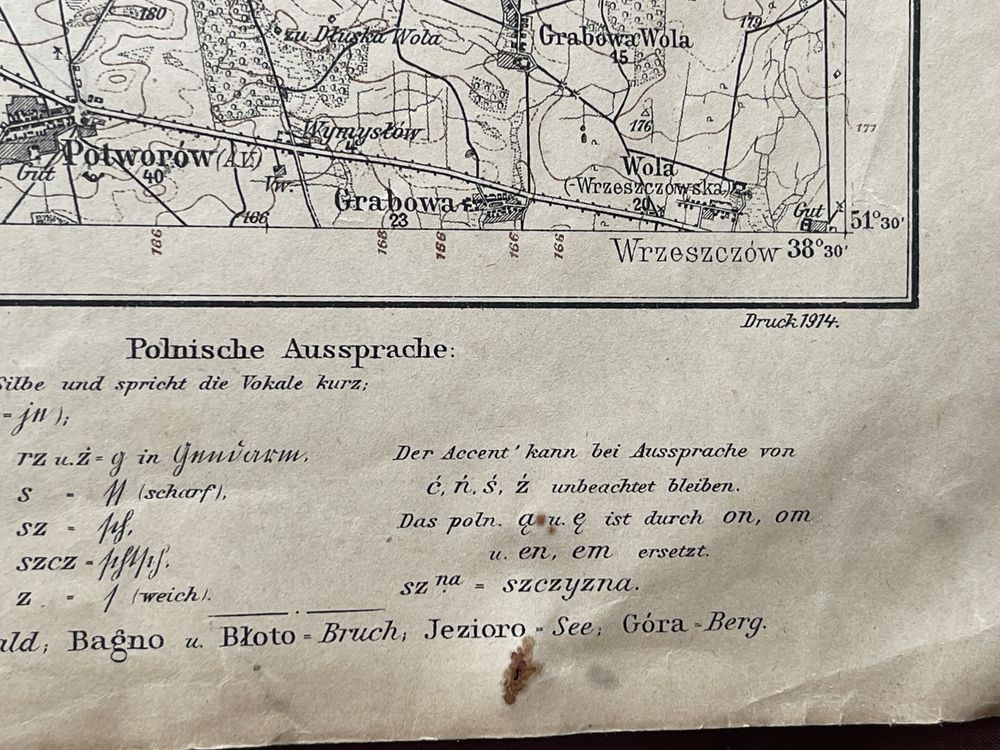 180
zu Dłuska Wola
Grabowa Wola
15
179
176
177
Wymysłów
4
Potworów (Av.)
40
Gut
Vw.
Wola
(-Wrzeszczowska)
20
Grabowa
23
166
Gut
51°30'
166
168
166
166
166
Wrzeszczów 38°30'
Druck 1914.
Polnische Aussprache:
Silbe und spricht die Vokale kurz;
= jn);
rz u. ż = g in Gendarm.
s = ss (scharf),
sz = sch,
szcz = schtsch.
z = s (weich).
Der Accent ' kann bei Aussprache von
ć, ń, ś, ź unbeachtet bleiben.
Das poln. ą u. ę ist durch on, om
u. en, em ersetzt.
szna. = szczyzna.
ald; Bagno u. Błoto = Bruch; Jezioro = See; Góra = Berg.